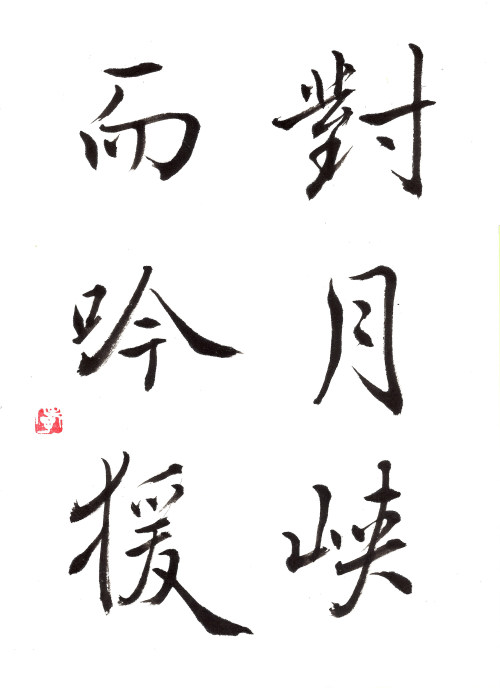 對月峽
而吟猨